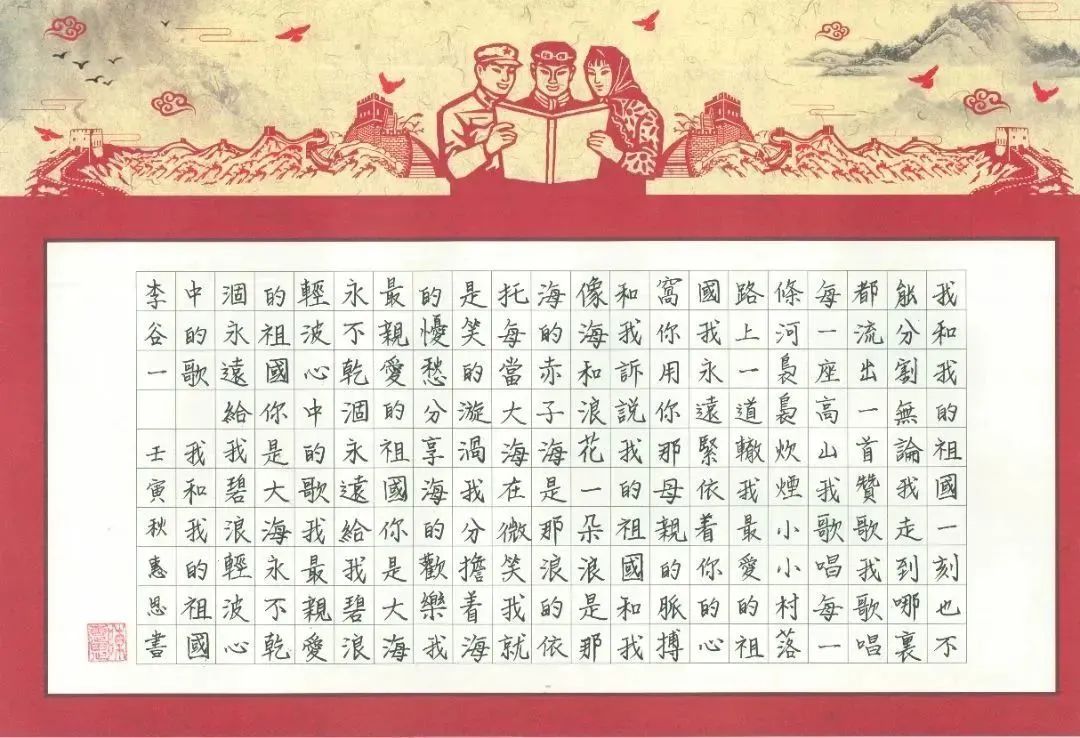 我和我的祖國一刻也不
能分割無論我走到哪裏
都流出一首贊歌我歌唱
每一座高山我歌唱每一
條河裊裊炊煙小小村落
路上一道轍我最愛的祖
國我永遠緊依着你的心
窩你用你那母親的脈搏
和我訴説我的祖國和我
像海和浪花一朵浪是那
海的赤子海是那浪的依
托每當大海在微笑我就
是笑的漩渦我分擔着海
的懮愁分享海的歡樂我
最親愛的祖國你是大海
永不乾涸永遠給我碧浪
輕波心中的歌我最親愛
的祖國你是大海永不乾
涸永遠給我碧浪輕波心
中的歌我和我的祖國
李谷一壬寅秋惠恩書